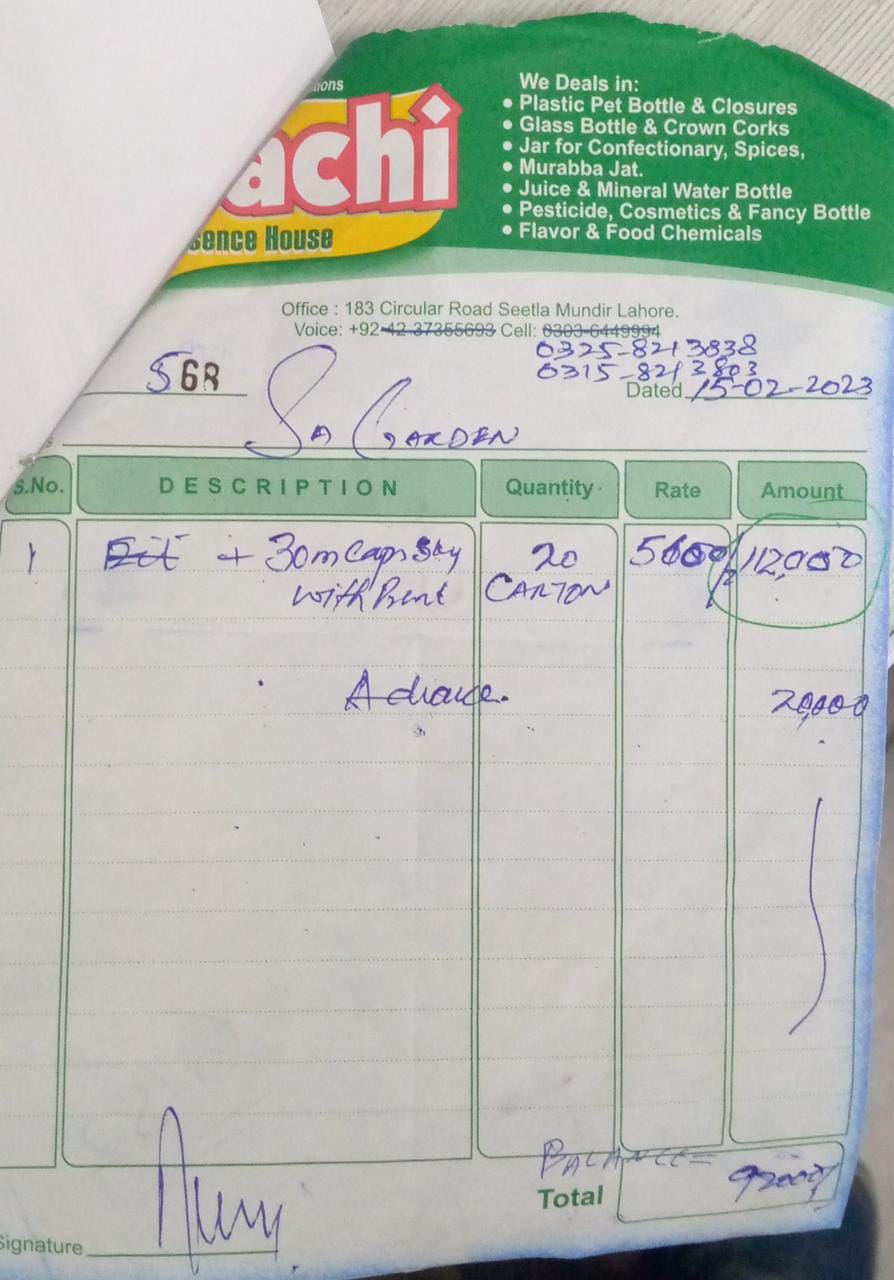 ions
achi
sence House
We Deals in:
• Plastic Pet Bottle & Closures
• Glass Bottle & Crown Corks
• Jar for Confectionary, Spices,
• Murabba Jat.
• Juice & Mineral Water Bottle
• Pesticide, Cosmetics & Fancy Bottle
• Flavor & Food Chemicals
Office : 183 Circular Road Seetla Mundir Lahore.
Voice: +92-42-37355693 Cell: 0303-6449994
0325-8213838
0315-8213803
568
Dated 15-02-2023
SA GARDEN
S.No. DESCRIPTION Quantity Rate Amount
1 + 30m Caps 20 5600/ 112,000
with CARTON
Advance. 20,000
BALANCE=
Total 92000/
Signature